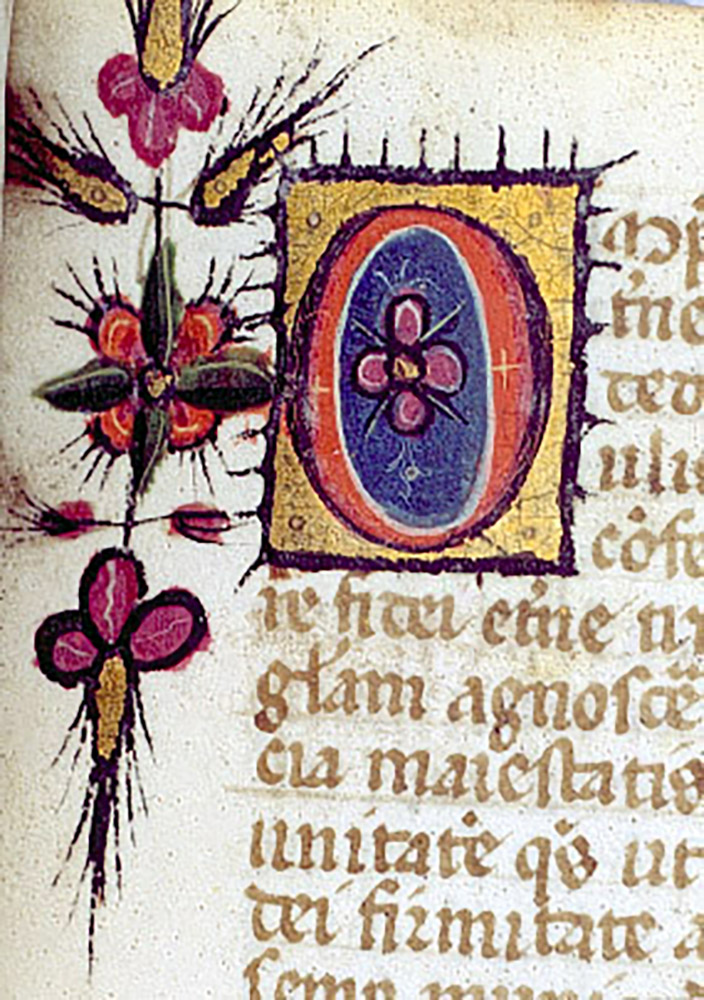 O mp̄
t̄ne
ted
ulis
cōfe
re fidei et̄ne tri
gl̄am agnoscē
cia maiestatis
unitatē qs̄ ut
dei firmitate a
semp muni